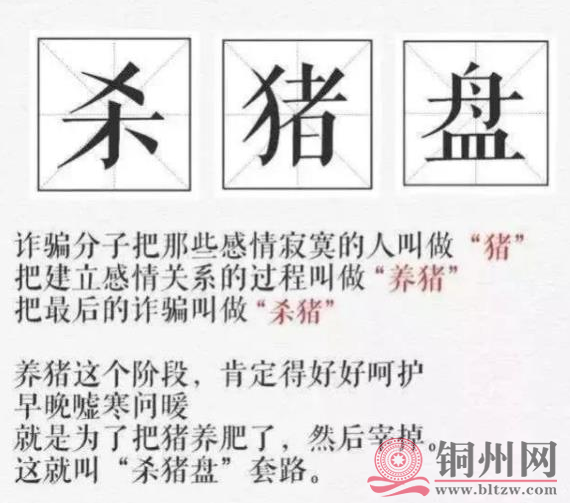 杀猪盘
诈骗分子把那些感情寂寞的人叫做“猪”
把建立感情关系的过程叫做“养猪”
把最后的诈骗叫做“杀猪”
养猪这个阶段，肯定得好好呵护
早晚嘘寒问暖
就是为了把猪养肥了，然后宰掉。
这就叫“杀猪盘”套路。
铜州网
www.bltzw.com